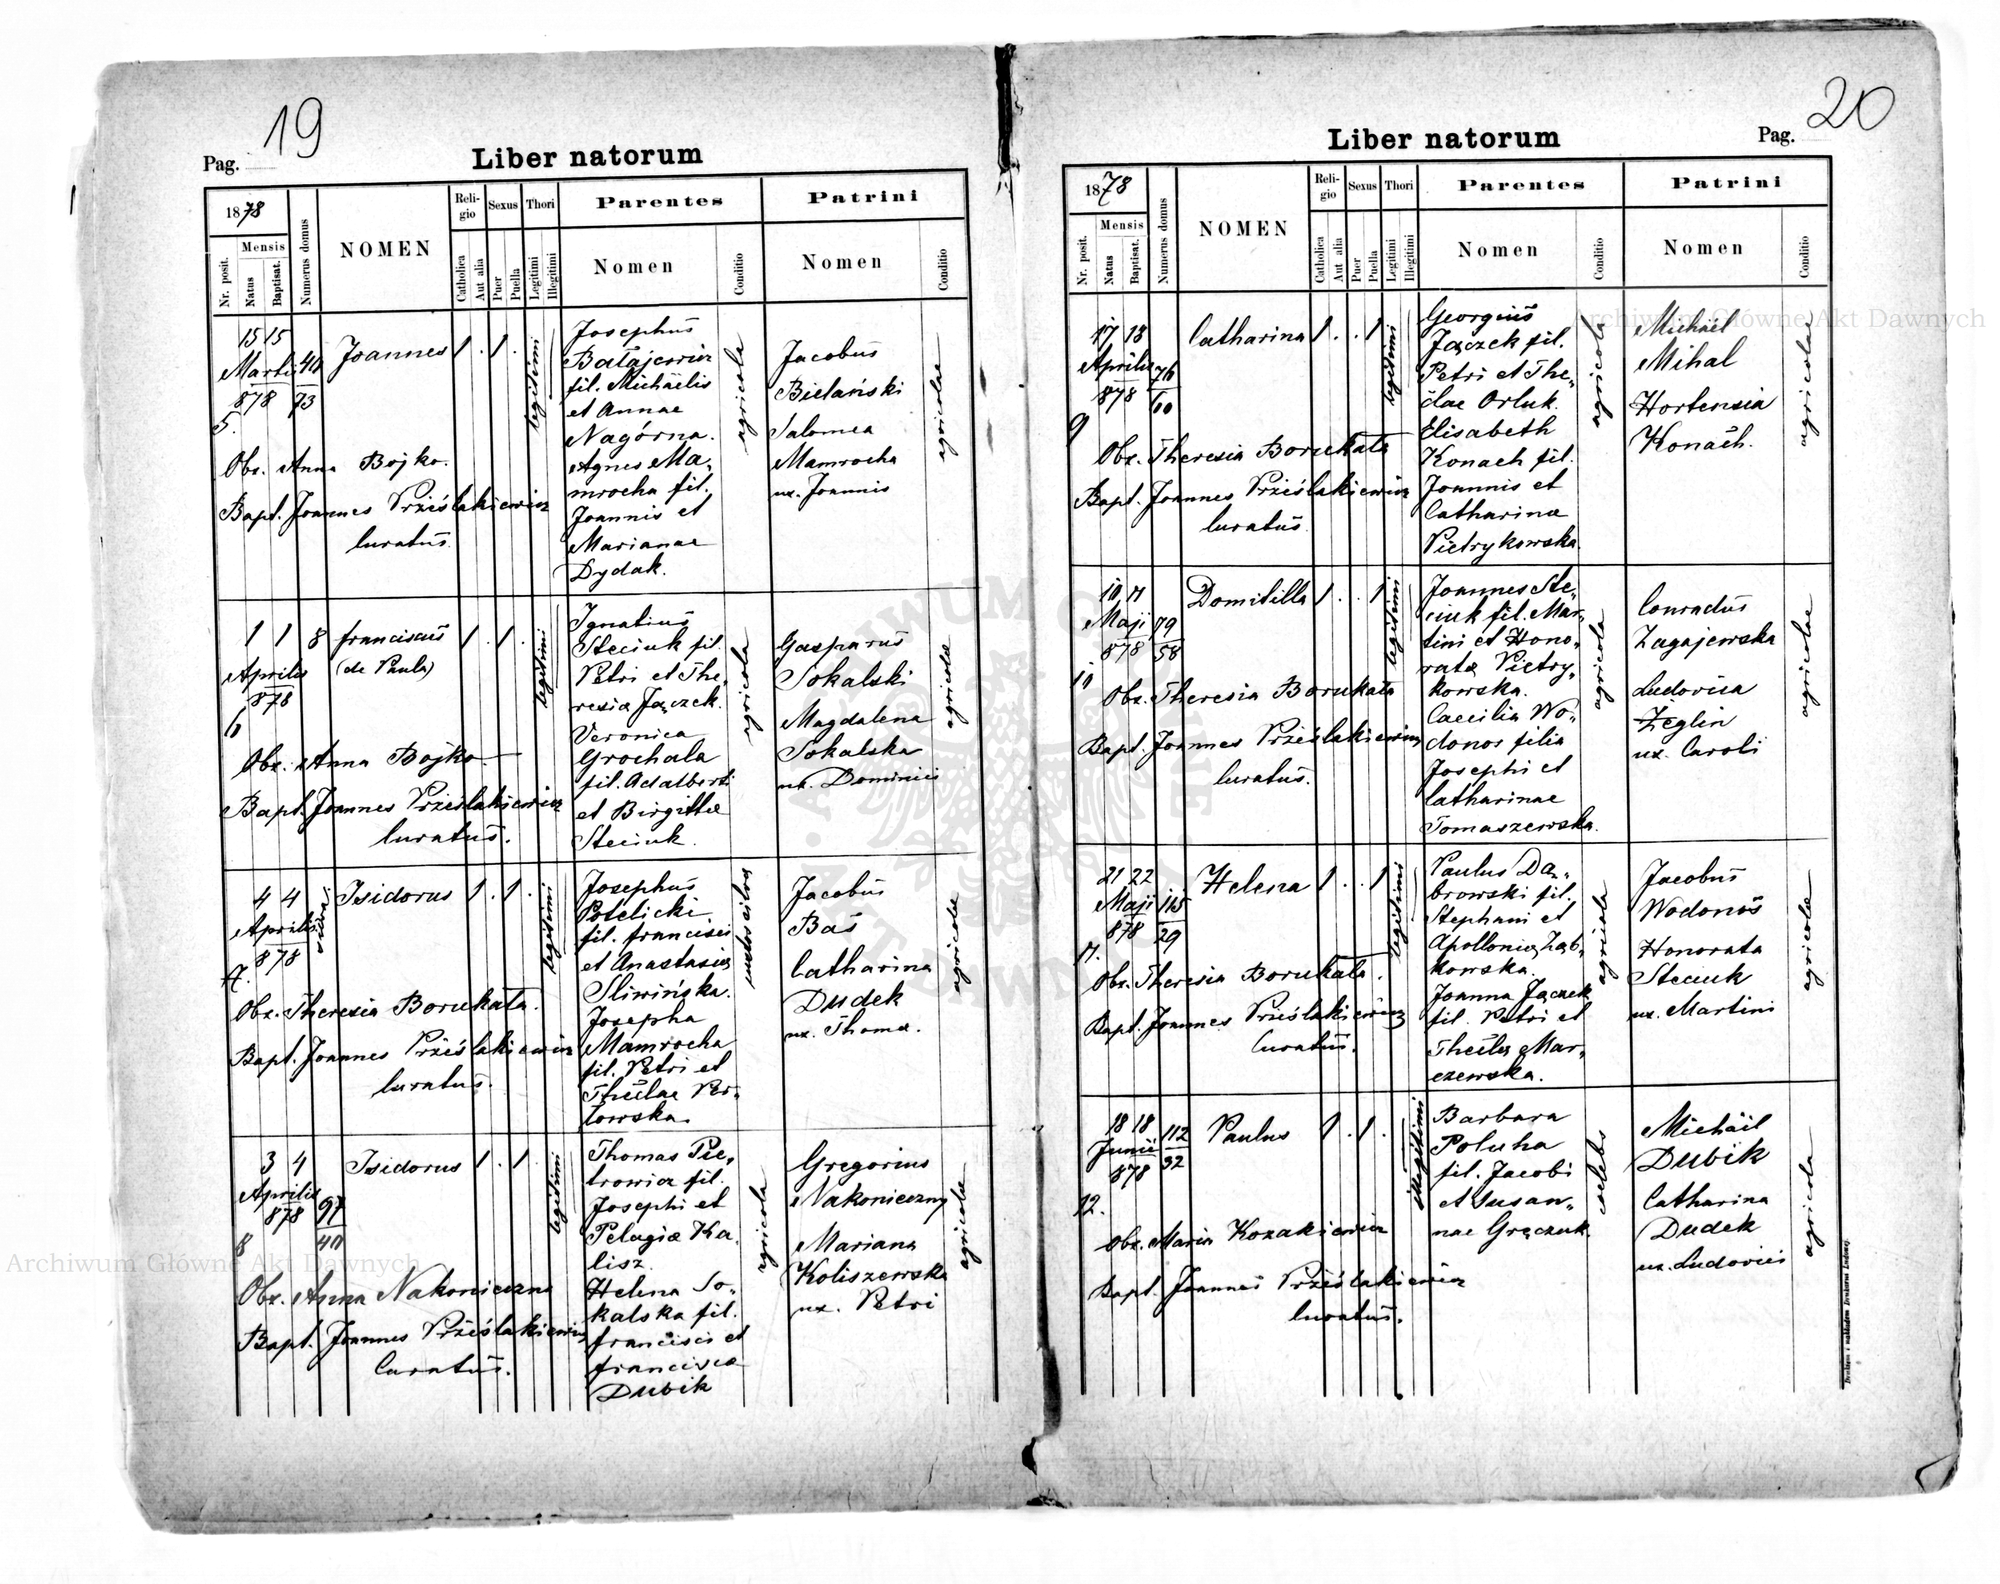 19
Pag.
Liber natorum
1878
Nr. posit.
Mensis
Natus
Baptisat.
Numerus domus
NOMEN
Religio
Catholica
Aut alia
Sexus
Puer
Puella
Thori
Legitimi
Illegitimi
Parentes
Nomen
Conditio
Patrini
Nomen
Conditio
15 15
Martii
878
5.
73
Joannes
1 . 1 .
legitimi
Josephus
Batajewicz
fil. Michaelis
et Annae
Nagórna.
Agnes Ma-
mrocha fil.
Joannis et
Marianae
Dydak.
agricola
Jacobus
Bielański
Salomea
Mamrocha
ux. Joannis
agricolae
Obx. Anna Bojko.
Bapt. Joannes Prześlakiewicz
Curatus.
1 1 8
Aprilis
878
6
Franciscus
(de Paula)
1 . 1 .
legitimi
Ignatius
Steciuk fil.
Petri et The-
resia Jączek.
Veronica
Grochala
fil. Adalberti
et Birgittae
Steciuk.
agricola
Gasparus
Sokalski
Magdalena
Sokalska
ux. Dominici
agricolae
Obx. Anna Bojko
Bapt. Joannes Prześlakiewicz
Curatus.
4 4
Aprilis
878
7.
Isidorus
1 . 1 .
legitimi
Josephus
Potelicki
fil. Francisci
et Anastasia
Sliwińska.
Josepha
Mamrocha
fil. Petri et
Theclae Per-
łowska.
Jacobus
Bas
Catharina
Dudek
ux. Thoma.
agricolae
Obx. Theresia Borukała.
Bapt. Joannes Prześlakiewicz
Curatus.
3 4
Aprilis
878
97
40
8
Isidorus
1 . 1 .
legitimi
Thomas Pie-
trowicz fil.
Josephi et
Pelagiae Ka-
lisz.
Helena So-
kalska fil.
Francisci et
Francisca
Dubik
agricola
Gregorius
Nakonieczny
Mariana
Koliszewska
ux. Petri
agricolae
Obx. Anna Nakonieczna
Bapt. Joannes Prześlakiewicz
Curatus.
20
Liber natorum
Pag.
1878
Nr. posit.
Mensis
Natus
Baptisat.
Numerus domus
NOMEN
Religio
Catholica
Aut alia
Sexus
Puer
Puella
Thori
Legitimi
Illegitimi
Parentes
Nomen
Conditio
Patrini
Nomen
Conditio
17 18
Aprilis
878
76
60
9
Catharina
1 . . 1
legitimi
Georgius
Jączek fil.
Petri et The-
clae Orluk.
Elisabeth
Konach fil.
Joannis et
Catharinae
Pietrykowska.
agricola
Michael
Mihal
Hortensia
Konach.
agricolae
Obx. Theresia Borukała
Bapt. Joannes Prześlakiewicz
Curatus.
10 11
Maji
878
79
58
10
Domitilla
1 . . 1
legitimi
Joannes Ste-
ciuk fil. Mar-
tini et Hono-
rata Pietry-
kowska.
Caecilia Wo-
donos filia
Josephi et
Catharinae
Tomaszewska.
agricola
Conradus
Zagajewska
Ludovica
Żeglin
ux. Caroli
agricolae
Obx. Theresia Borukała
Bapt. Joannes Prześlakiewicz
Curatus.
21 22
Maji
878
115
29
11.
Helena
1 . . 1
legitimi
Paulus Dą-
browski fil.
Stephani et
Apollonia Ząb-
kowska.
Joanna Jączek
fil. Petri et
Thecla Mar-
czewska.
agricola
Jacobus
Wodonos
Honorata
Steciuk
ux. Martini
agricolae
Obx. Theresia Borukała.
Bapt. Joannes Prześlakiewicz
Curatus.
18 18
Junii
878
112
32
12.
Paulus
1 . 1 .
illegitimi
Barbara
Poluha
fil. Jacobi
et Susan-
nae Gręczuk.
celebs
Michail
Dubik
Catharina
Dudek
ux. Ludovici
agricola
Obx. Maria Kozakiewicz
Bapt. Joannes Prześlakiewicz
Curatus.
Drukiem i nakładem Drukarni Ludowej.
Archiwum Główne Akt Dawnych
Archiwum Główne Akt Dawnych